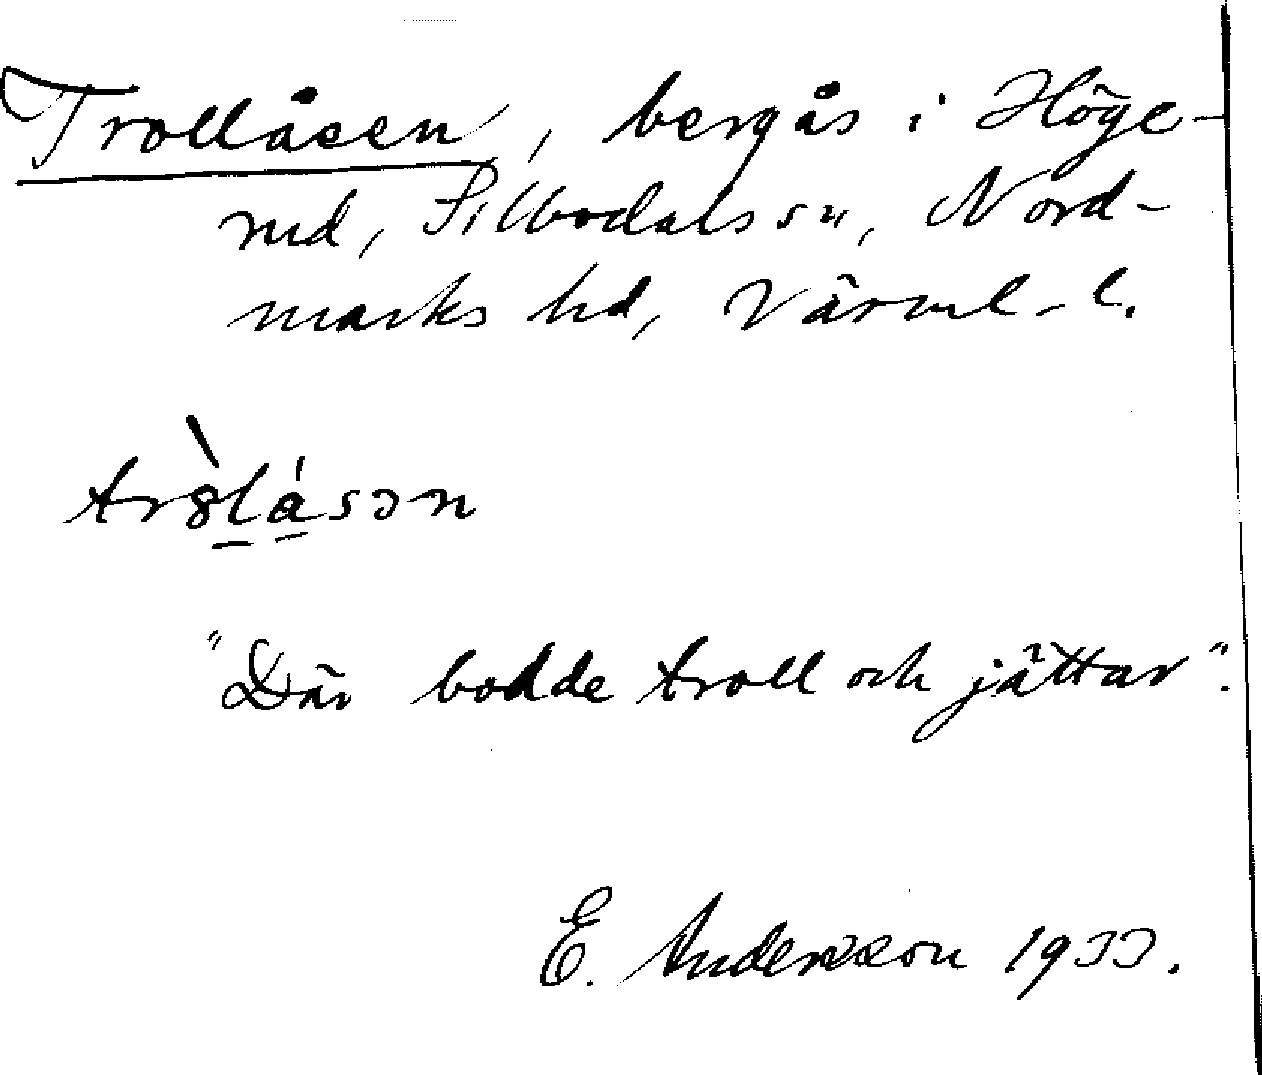 Trollåsen, bergås i Höge-
rud, Silbodals sn, Nord-
marks hd, Värml. l.
tr8̀lǻsən
"Där bodde troll och jättar".
E. Andersson 1933.